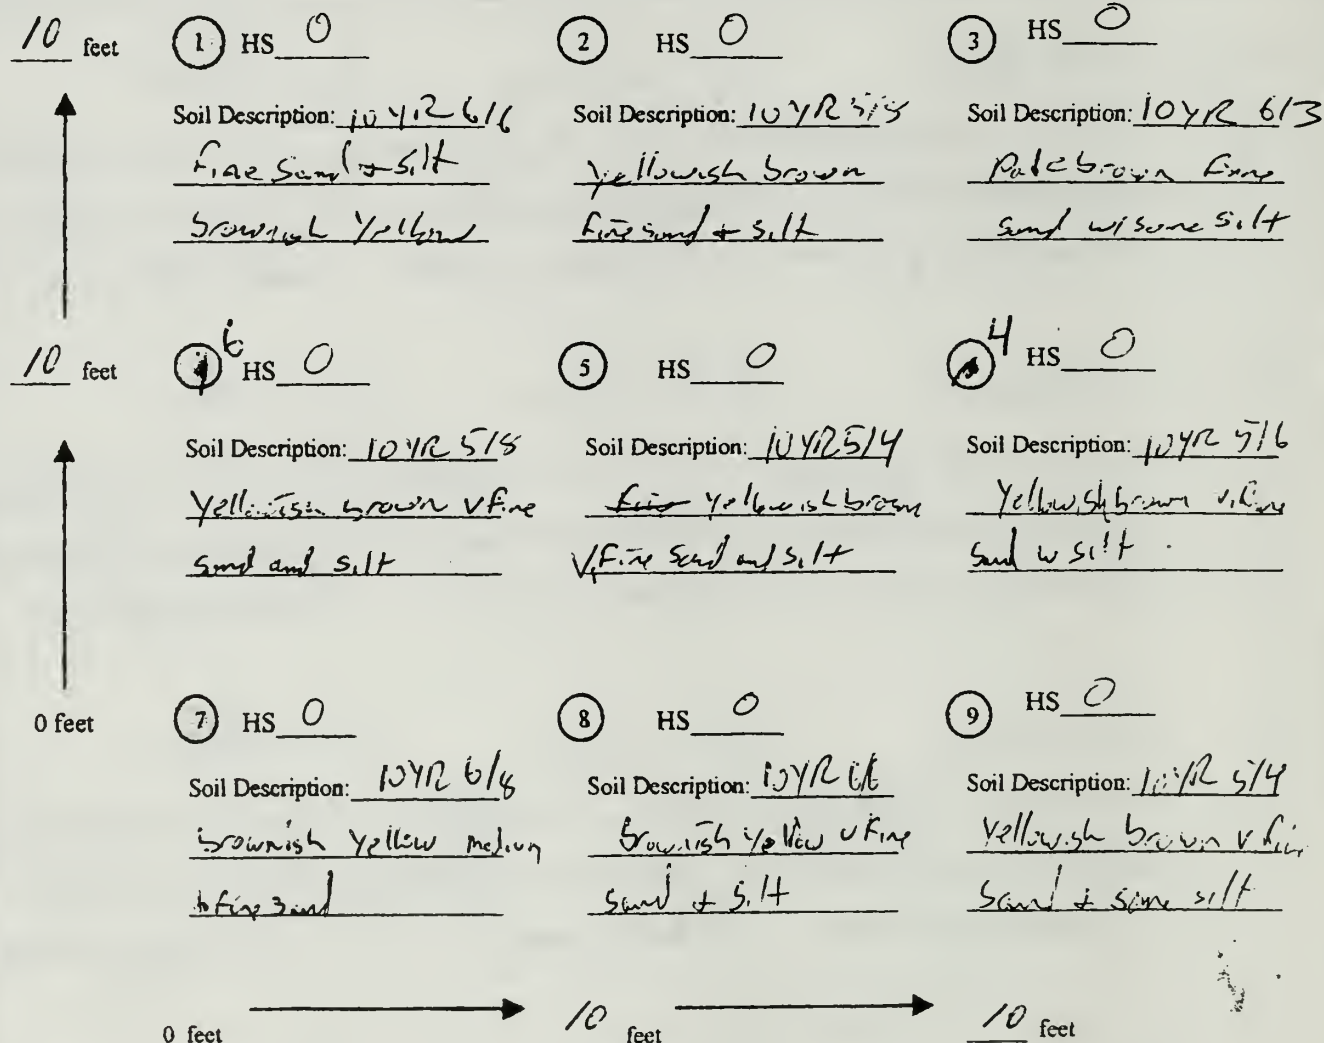 10 feet
1 HS 0
2 HS 0
3 HS 0
Soil Description: 10 YR 6/6
fine sand + silt
brownish yellow
Soil Description: 10 YR 5/8
yellowish brown
fine sand + silt
Soil Description: 10 YR 6/3
Pale brown fine
sand w/ some silt
10 feet
6 HS 0
5 HS 0
4 HS 0
Soil Description: 10 YR 5/8
Yellowish brown v fine
sand and silt
Soil Description: 10 YR 5/4
yellowish brown
V. fine sand and silt
Soil Description: 10 YR 5/6
Yellowish brown v. fine
sand w silt
0 feet
7 HS 0
8 HS 0
9 HS 0
Soil Description: 10 YR 6/8
brownish yellow medium
to fine sand
Soil Description: 10 YR 6/6
brownish yellow v fine
sand + silt
Soil Description: 10 YR 5/4
Yellowish brown v fine
sand + some silt
0 feet
10 feet
10 feet